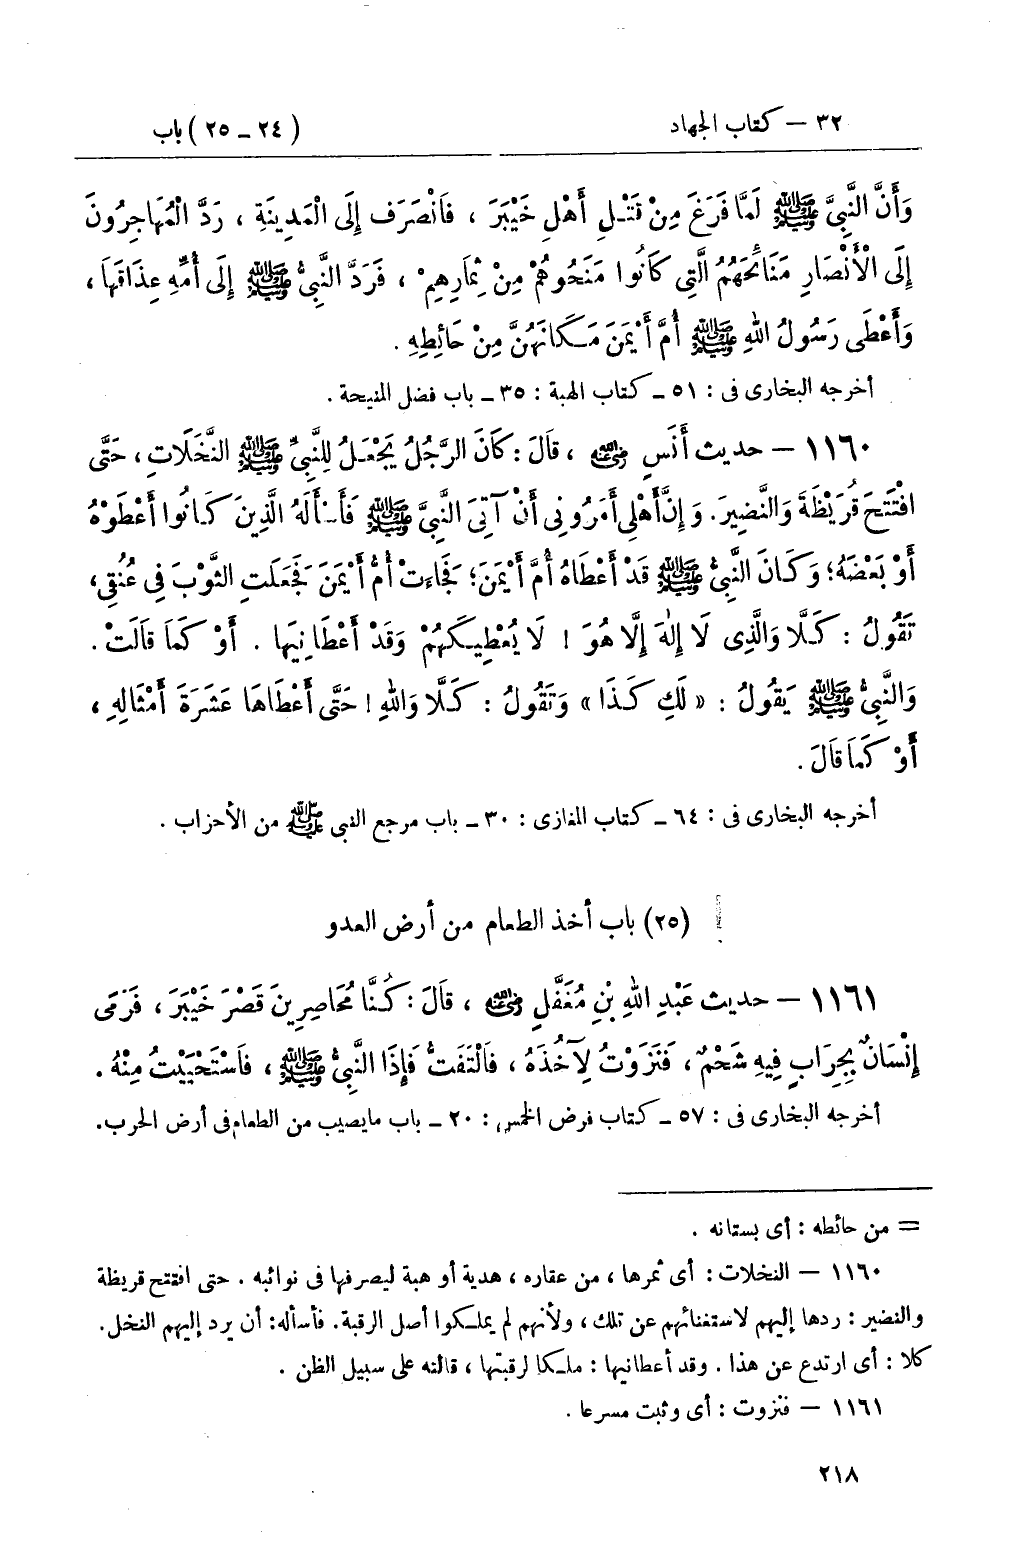 ٣٢ – كتاب الجهاد
(٢٤ – ٢٥) باب
وَأَنَّ النَّبِيَّ ﷺ لَمَّا فَرَغَ مِنْ قَتْلِ أَهْلِ خَيْبَرَ ، فَانْصَرَفَ إِلَى الْمَدِينَةِ ، رَدَّ الْمُهَاجِرُونَ
إِلَى الْأَنْصَارِ مَنَائِحَهُمُ الَّتِي كَانُوا مَنَحُوهُمْ مِنْ ثِمَارِهِمْ ، فَرَدَّ النَّبِيُّ ﷺ إِلَى أُمِّهِ عِذَاقَهَا ،
وَأَعْطَى رَسُولُ اللهِ ﷺ أُمَّ أَيْمَنَ مَكَانَهُنَّ مِنْ حَائِطِهِ .
أخرجه البخارى فى : ٥١ – كتاب الهبة : ٣٥ – باب فضل المنيحة .
١١٦٠ – حديث أَنَسٍ رضي الله عنه ، قَالَ : كَانَ الرَّجُلُ يَجْعَلُ لِلنَّبِيِّ ﷺ النَّخَلَاتِ ، حَتَّى
افْتَتَحَ قُرَيْظَةَ وَالنَّضِيرَ. وَإِنَّ أَهْلِى أَمَرُونِى أَنْ آتِىَ النَّبِيَّ ﷺ فَأَسْأَلَهُ الَّذِينَ كَانُوا أَعْطَوْهُ
أَوْ بَعْضَهُ؛ وَكَانَ النَّبِيُّ ﷺ قَدْ أَعْطَاهُ أُمَّ أَيْمَنَ؛ فَجَاءَتْ أُمُّ أَيْمَنَ فَجَعَلَتِ الثَّوْبَ فِى عُنُقِى،
تَقُولُ : كَلَّا وَالَّذِى لَا إِلٰهَ إِلَّا هُوَ ! لَا يُعْطِيكَهُمْ وَقَدْ أَعْطَانِيهَا . أَوْ كَمَا قَالَتْ .
وَالنَّبِيُّ ﷺ يَقُولُ : « لَكِ كَذَا » وَتَقُولُ : كَلَّا وَاللهِ ! حَتَّى أَعْطَاهَا عَشَرَةَ أَمْثَالِهِ ،
أَوْ كَمَا قَالَ .
أخرجه البخارى فى : ٦٤ – كتاب المغازى : ٣٠ – باب مرجع النبى ﷺ من الأحزاب .
(٢٥) باب أخذ الطعام من أرض العدو
١١٦١ – حديث عَبْدِ اللهِ بْنِ مُغَفَّلٍ رضي الله عنه ، قَالَ : كُنَّا مُحَاصِرِينَ قَصْرَ خَيْبَرَ ، فَرَمَى
إِنْسَانٌ بِجِرَابٍ فِيهِ شَحْمٌ ، فَنَزَوْتُ لِآخُذَهُ ، فَالْتَفَتُّ فَإِذَا النَّبِيُّ ﷺ ، فَاسْتَحْيَيْتُ مِنْهُ .
أخرجه البخارى فى : ٥٧ – كتاب فرض الخمس : ٢٠ – باب مايصيب من الطعام فى أرض الحرب.
= من حائطه : أى بستانه .
١١٦٠ – النخلات : أى ثمرها ، من عقاره ، هدية أو هبة ليصرفها فى نوائبه . حتى افتتح قريظة
والنضير : ردها إليهم لاستغنائهم عن تلك ، ولأنهم لم يملكوا أصل الرقبة. فأسأله: أن يرد إليهم النخل.
كلا : أى ارتدع عن هذا . وقد أعطانيها : ملكا لرقبتها ، قالته على سبيل الظن .
١١٦١ – فنزوت : أى وثبت مسرعا .
٢١٨